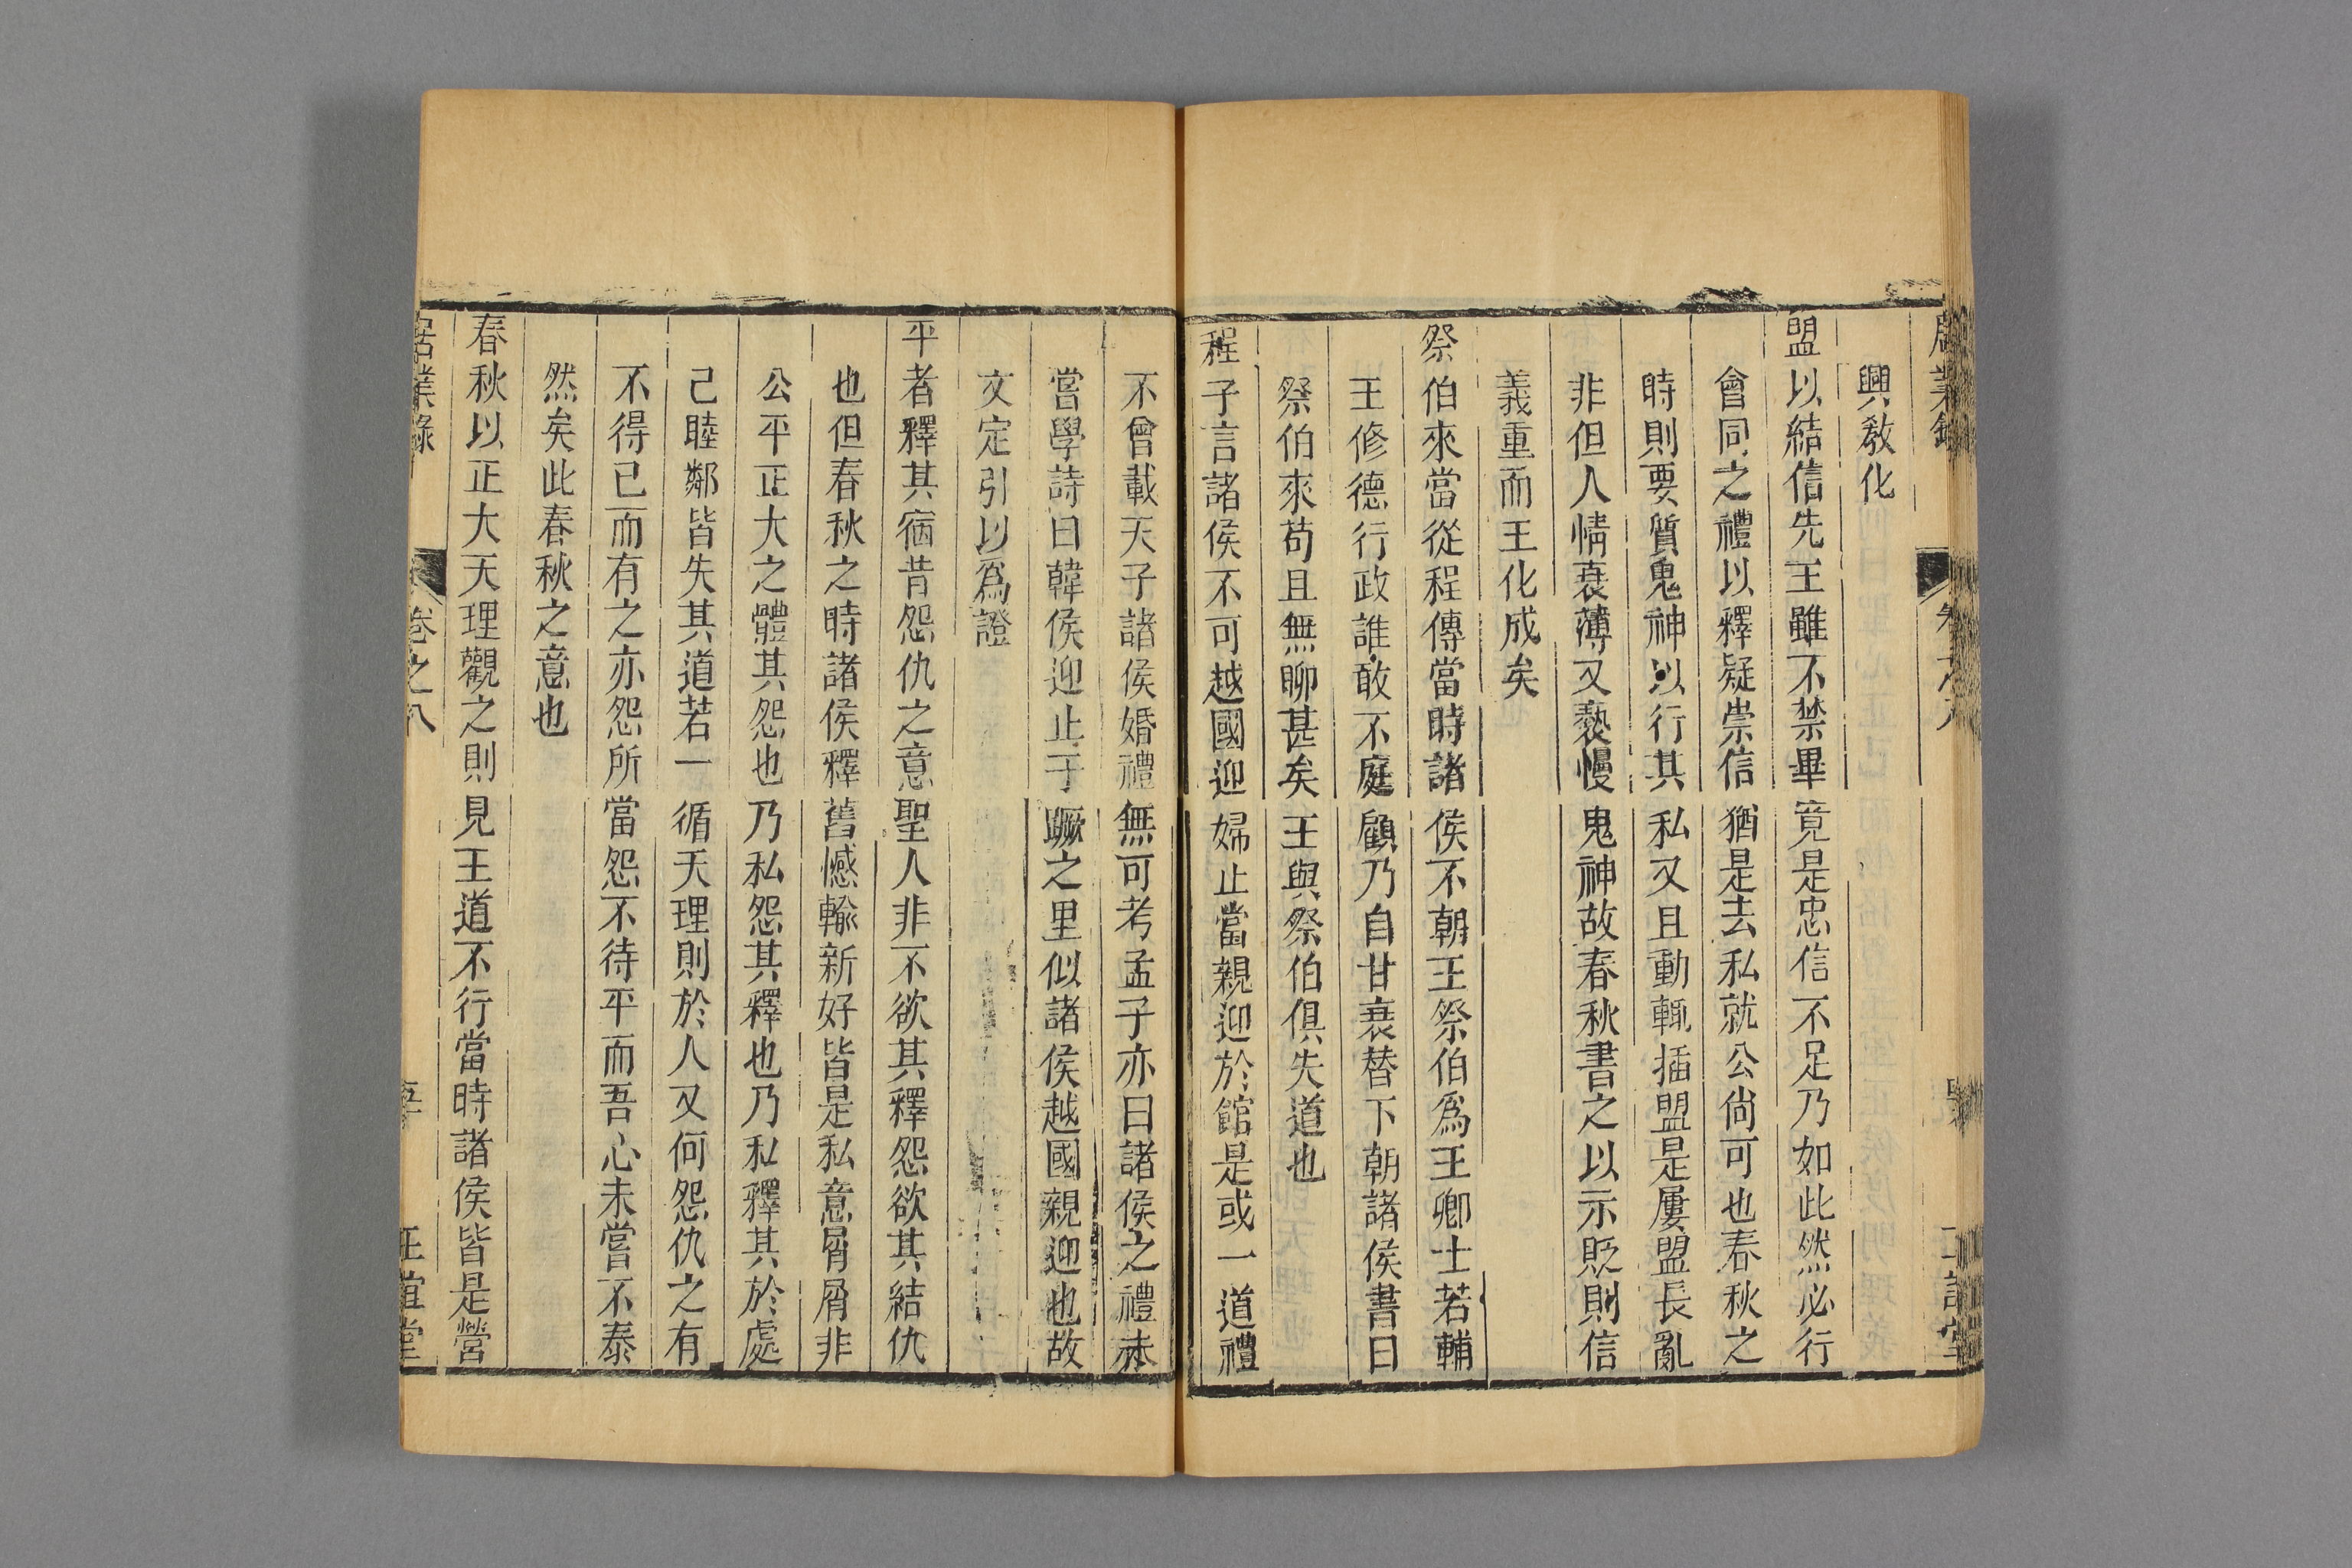 居業錄
卷之八
興教化
盟以結信先王雖不禁畢竟是忠信不足乃如此然必行
會同之禮以釋疑崇信猶是去私就公尙可也春秋之
時則要質鬼神以行其私又且動輒插盟是屢盟長亂
非但人情衰薄又褻慢鬼神故春秋書之以示貶則信
義重而王化成矣
祭伯來當從程傳當時諸侯不朝王祭伯爲王卿士若輔
王修德行政誰敢不庭顧乃自甘衰替下朝諸侯書曰
祭伯來苟且無聊甚矣王與祭伯俱失道也
程子言諸侯不可越國迎婦止當親迎於館是或一道禮
不曾載天子諸侯婚禮無可考孟子亦曰諸侯之禮未
嘗學詩曰韓侯迎止于蹶之里似諸侯越國親迎也故
文定引以爲證
平者釋其宿昔怨仇之意聖人非不欲其釋怨欲其結仇
也但春秋之時諸侯釋舊憾輸新好皆是私意屑屑非
公平正大之體其怨也乃私怨其釋也乃私釋其於處
己睦鄰皆失其道若一循天理則於人又何怨仇之有
不得已而有之亦怨所當怨不待平而吾心未嘗不泰
然矣此春秋之意也
春秋以正大天理觀之則見王道不行當時諸侯皆是營
居業錄
卷之八
正誼堂